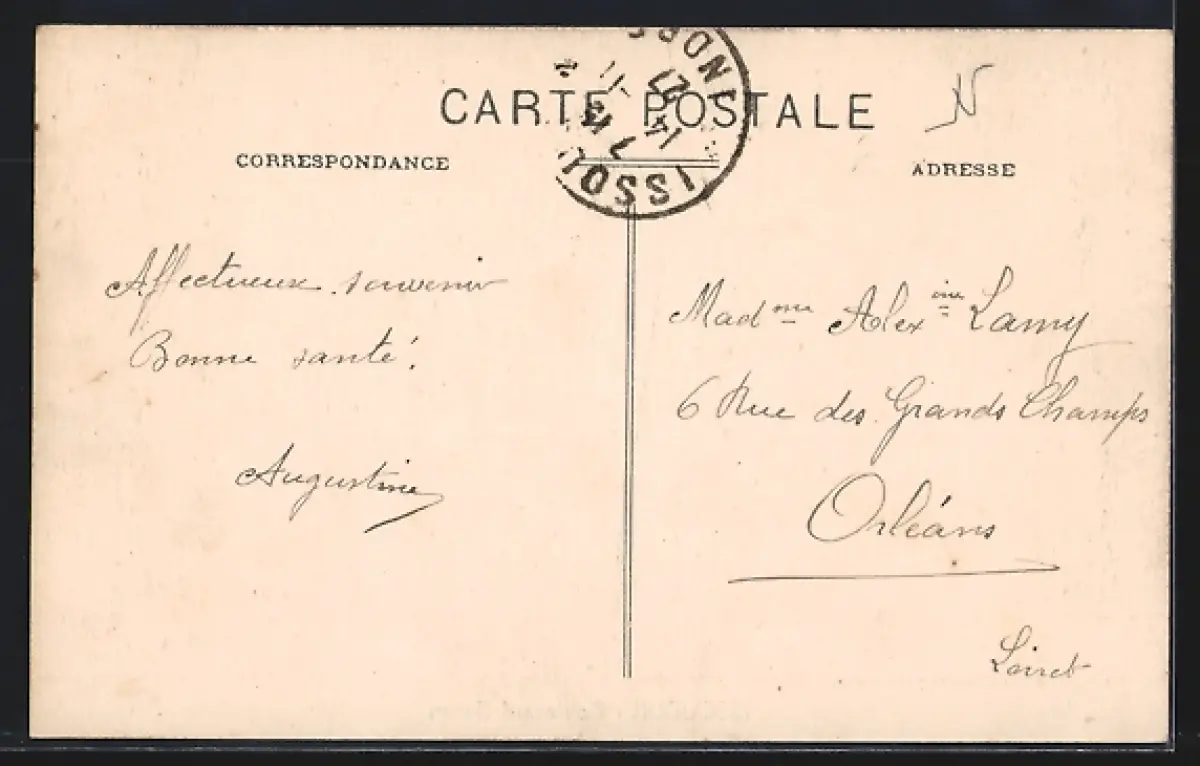 CARTE POSTALE
CORRESPONDANCE
ADRESSE
ISSOU
Affectueux souvenir
Bonne santé.
Augustine
Madme Alexine Lamy
6 Rue des Grands Champs
Orléans
Loiret